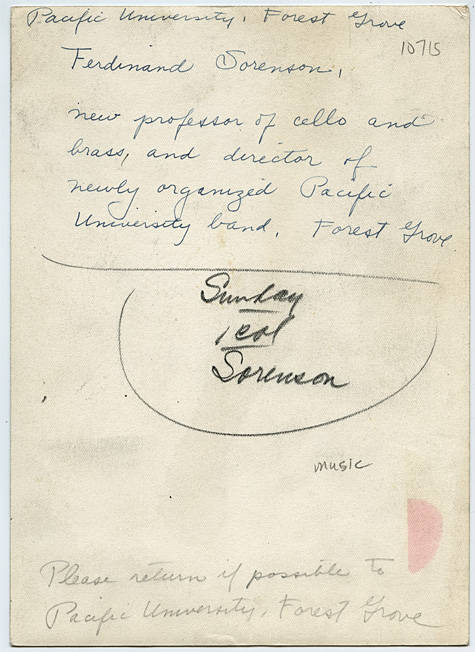 Pacific University, Forest Grove
10715
Ferdinand Sorenson,
new professor of cello and
brass, and director of
newly organized Pacific
University band, Forest Grove
Sunday
1 col
Sorenson
music
Please return if possible to
Pacific University, Forest Grove